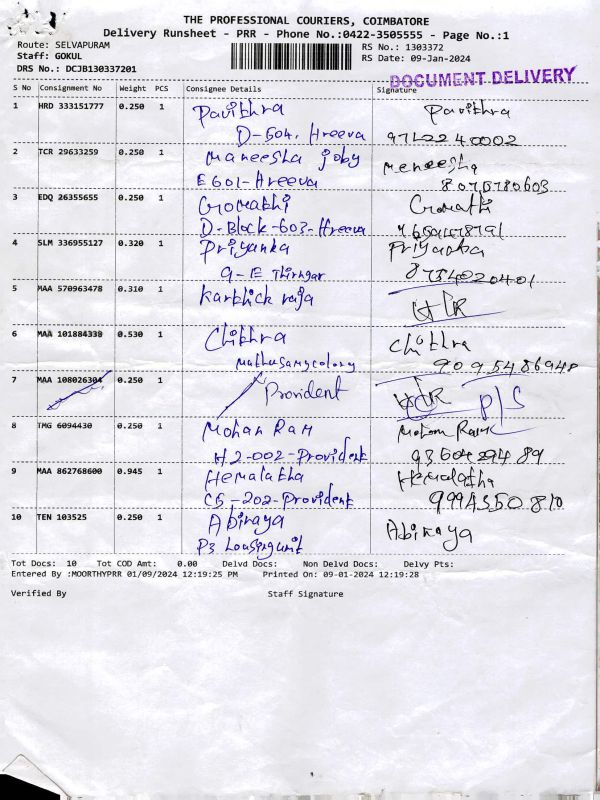 THE PROFESSIONAL COURIERS, COIMBATORE
Delivery Runsheet - PRR - Phone No.:0422-3505555 - Page No.:1
Route: SELVAPURAM
RS No.: 1303372
Staff: GOKUL
RS Date: 09-Jan-2024
DRS No.: DCJB130337201
DOCUMENT DELIVERY
S No Consignment No Weight PCS Consignee Details Signature
1 HRD 333151777 0.250 1 Pavithra Pavithra
D-504, Hreeva
2 TCR 29633259 0.250 1 Maneesha joby Meneesha
E601-Hreeva
3 EDQ 26355655 0.250 1 Gomathi Gomathi
D-Block-603-Hreeva
4 SLM 336955127 0.320 1 Priyanka Priyanka
9-E
5 MAA 570963478 0.310 1 Karthick raja
6 MAA 101884339 0.530 1 Chithra Chithra
Mathusamycolony 9095486948
7 MAA 108026304 0.250 1 Provident P/S
8 TMG 6094430 0.250 1 Mohan Ram Mohan Ram
H2-002-Provident 9360429489
9 MAA 862768600 0.945 1 Hemalatha Hemalatha
C5-202-Provident
10 TEN 103525 0.250 1 Abinaya Abinaya
P3
Tot Docs: 10 Tot COD Amt: 0.00 Delvd Docs: Non Delvd Docs: Delvy Pts:
Entered By :MOORTHYPRR 01/09/2024 12:19:25 PM Printed On: 09-01-2024 12:19:28
Verified By Staff Signature